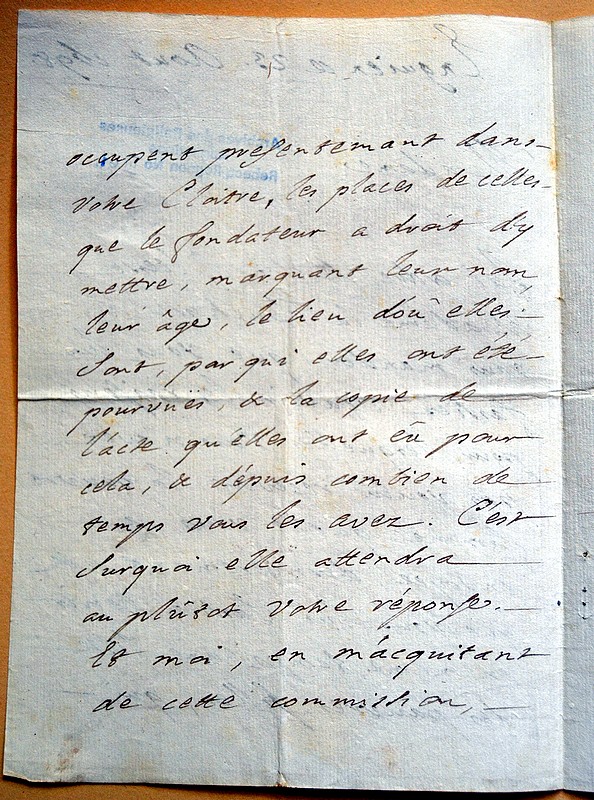 occupent presentemant dans
votre Cloitre, les places de celles
que le fondateur a droit d'y
mettre, marquant leur nom,
leur âge, le lieu d'ou elles
sont, par qui elles ont été
pourvües, & la copie de
l'acte qu'elles ont eü pour
cela, & dépuis combien de
temps vous les avez. C'est
surquoi elle attendra
au plûstot votre réponse.
Et moi, en m'acquitant
de cette commission,